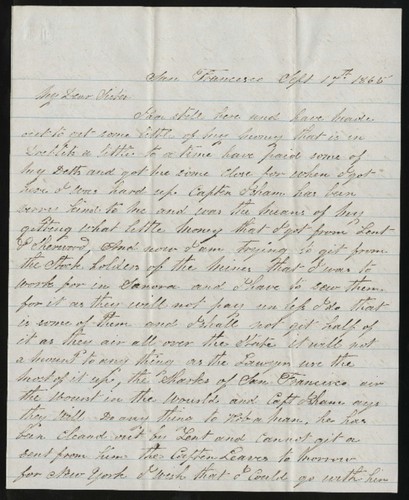 San Francisco Sept 17th 1865
My Dear Sister
I am still here and have made
out to git some little of my money that is in
a little to a time have paid some of
my Dets and got me some close for when I got
here I was hard up Capten Isham has ben
verry kind to me and was the means of my
gitting what little money that I got from Lent
& Sherwood, And now I am trying to git from
the Stock holders of the mines that I was to
work for in Sanora and I have to sew them
for it as they will not pay un less I do that
is some of them and I shall not get half of
it as they air all over the State it will not
a mount to any thing as the Lawyers use the
most of it up, the Sharks of San Francisco air
the Worst in the Would and Capt Isham says
they will Do any thing to Rob a man, he has
ben cleand out by Lent and cannot git a
cent from him the Capten Leaves to morrow
for New York I wish that I could go with him